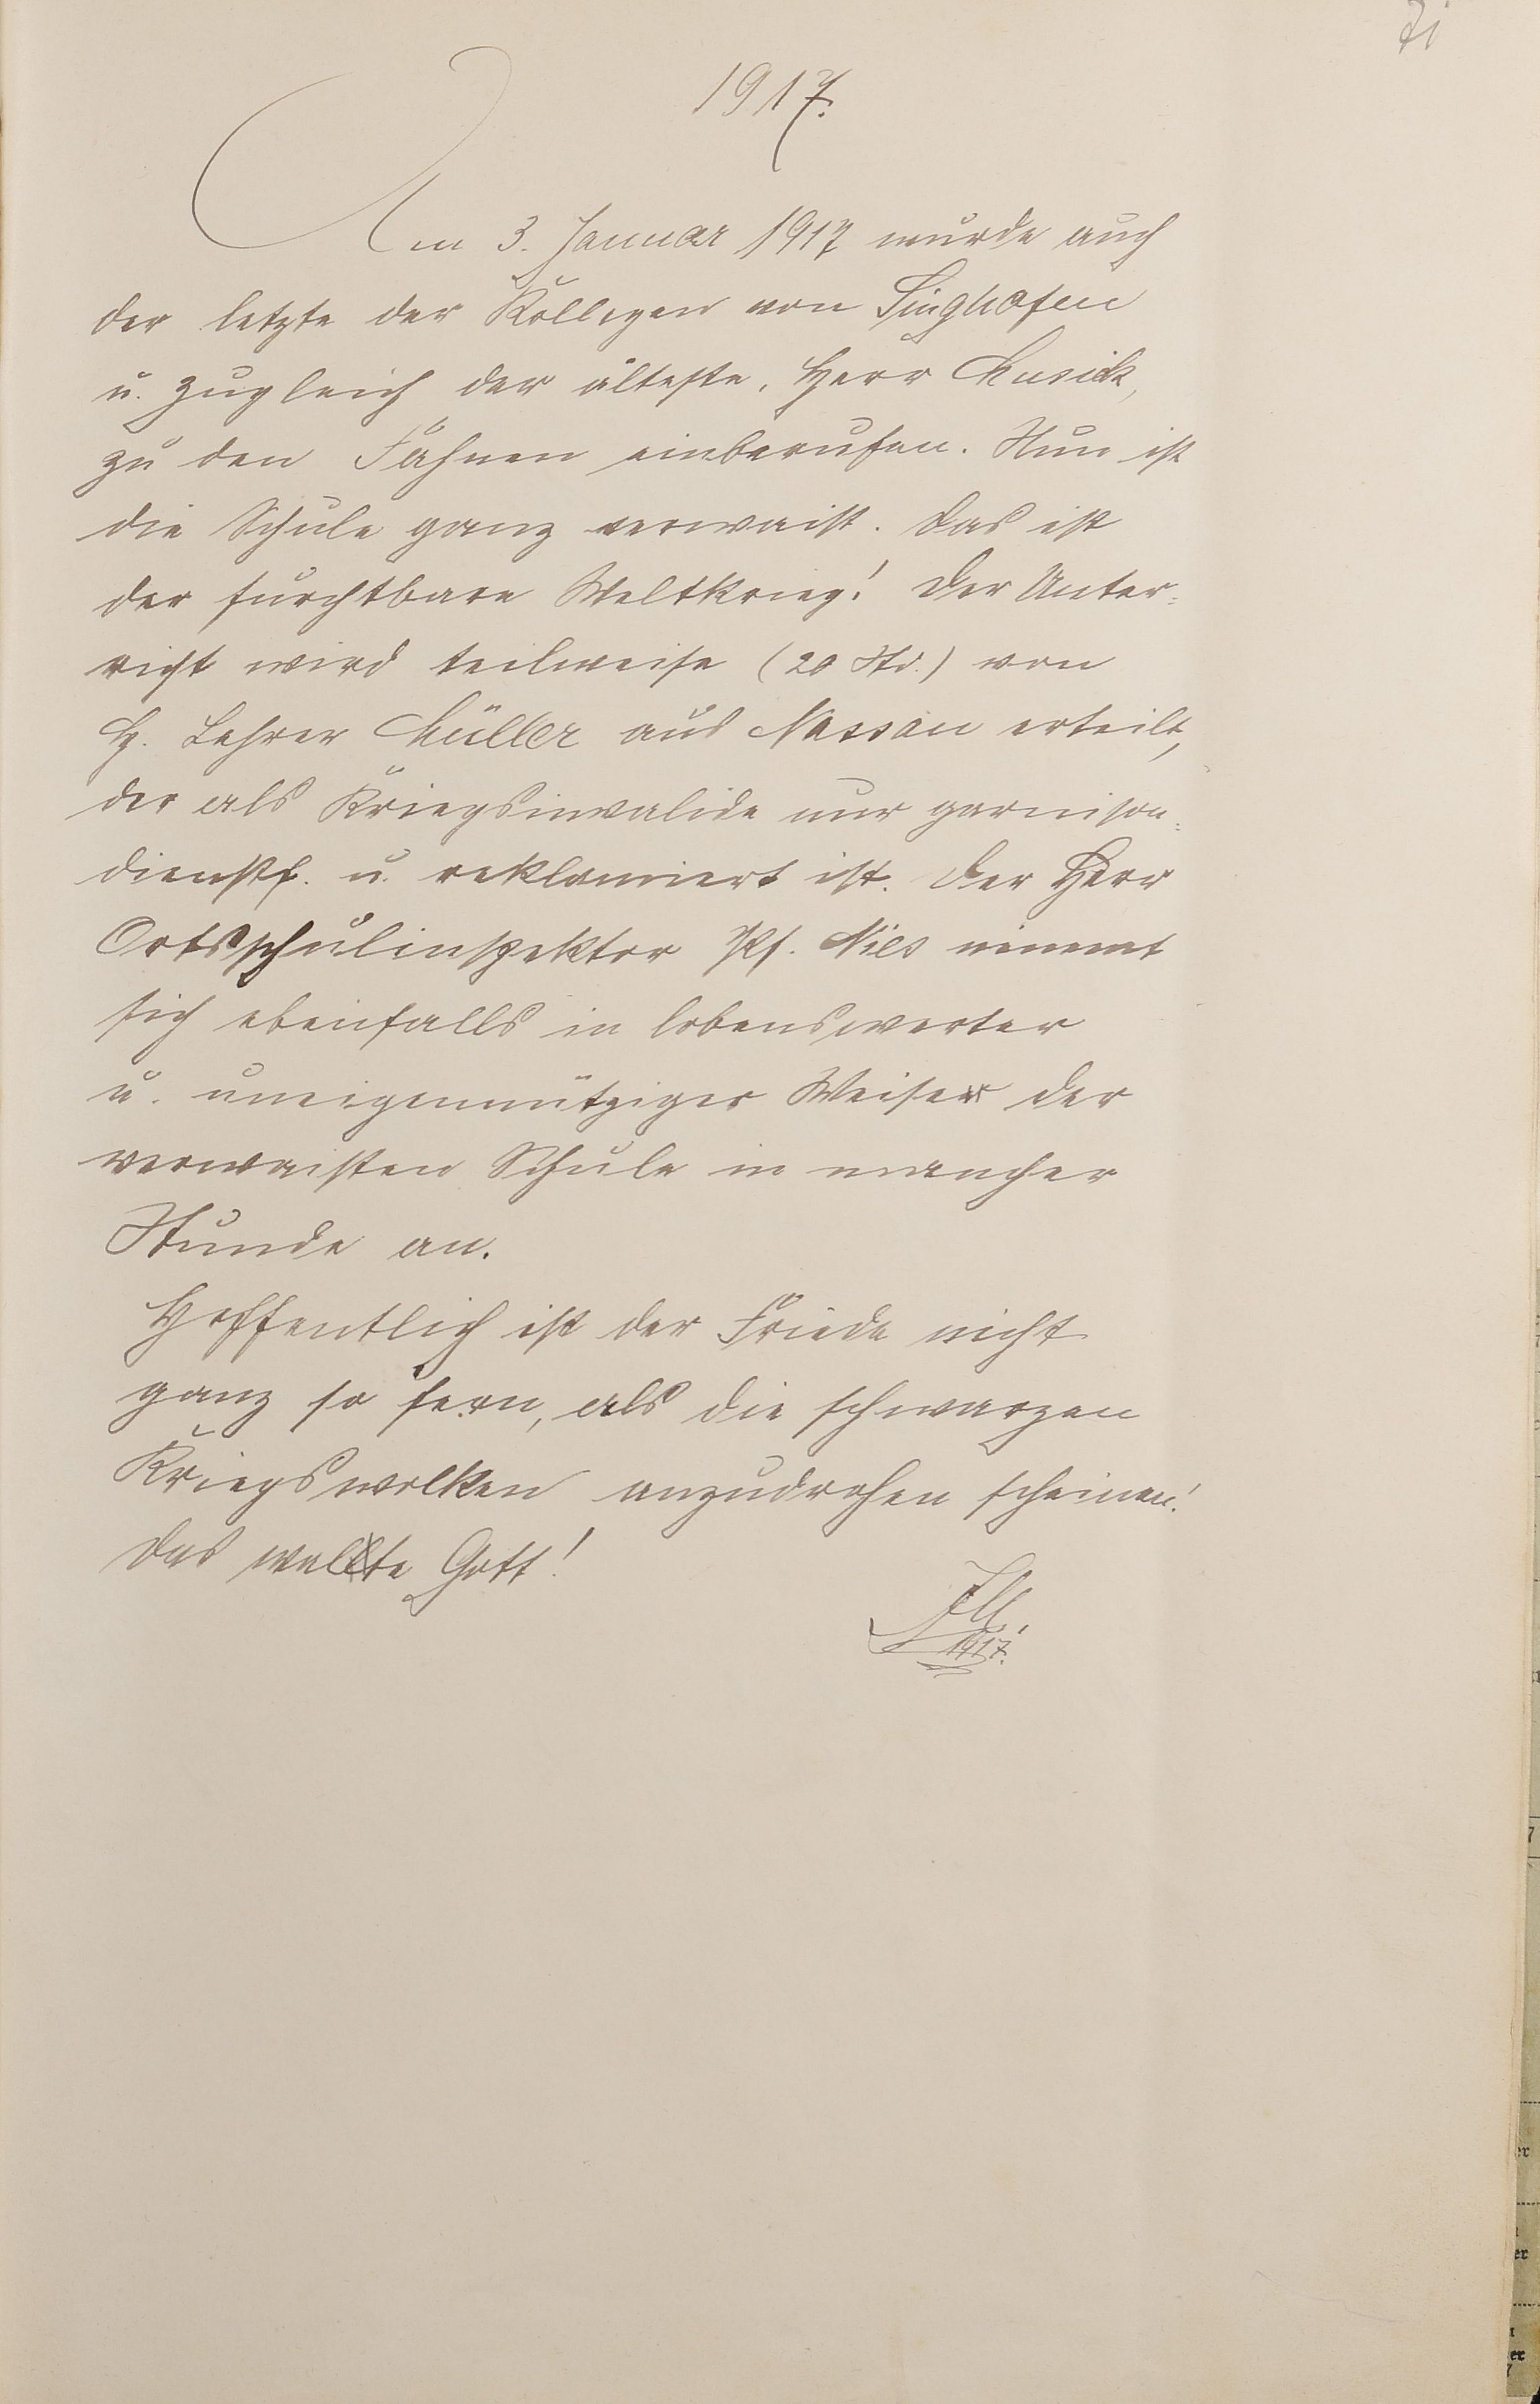 71
1917.
Am 3. Januar 1917 wurde auch
der letzte der Kollegen von Singhofen
u. zugleich der älteste, Herr Musick,
zu den Fahnen einberufen. Nun ist
die Schule ganz verwaist. Das ist
der furchtbare Weltkrieg! Der Unter-
richt wird teilweise (20 Std.) von
H. Lehrer Müller aus Nassau erteilt,
der als Kriegsinvalide nur garnison-
dienstf. u. reklamiert ist. Der Herr
Ortsschulinspektor Pf. Nies nimmt
sich ebenfalls in lobenswerter
u. uneigennütziger Weise der
verwaisten Schule in mancher
Stunde an.
Hoffentlich ist der Friede nicht
ganz so fern, als die schwarzen
Kriegswolken anzudrohen scheinen!
Das walte Gott!
1917.